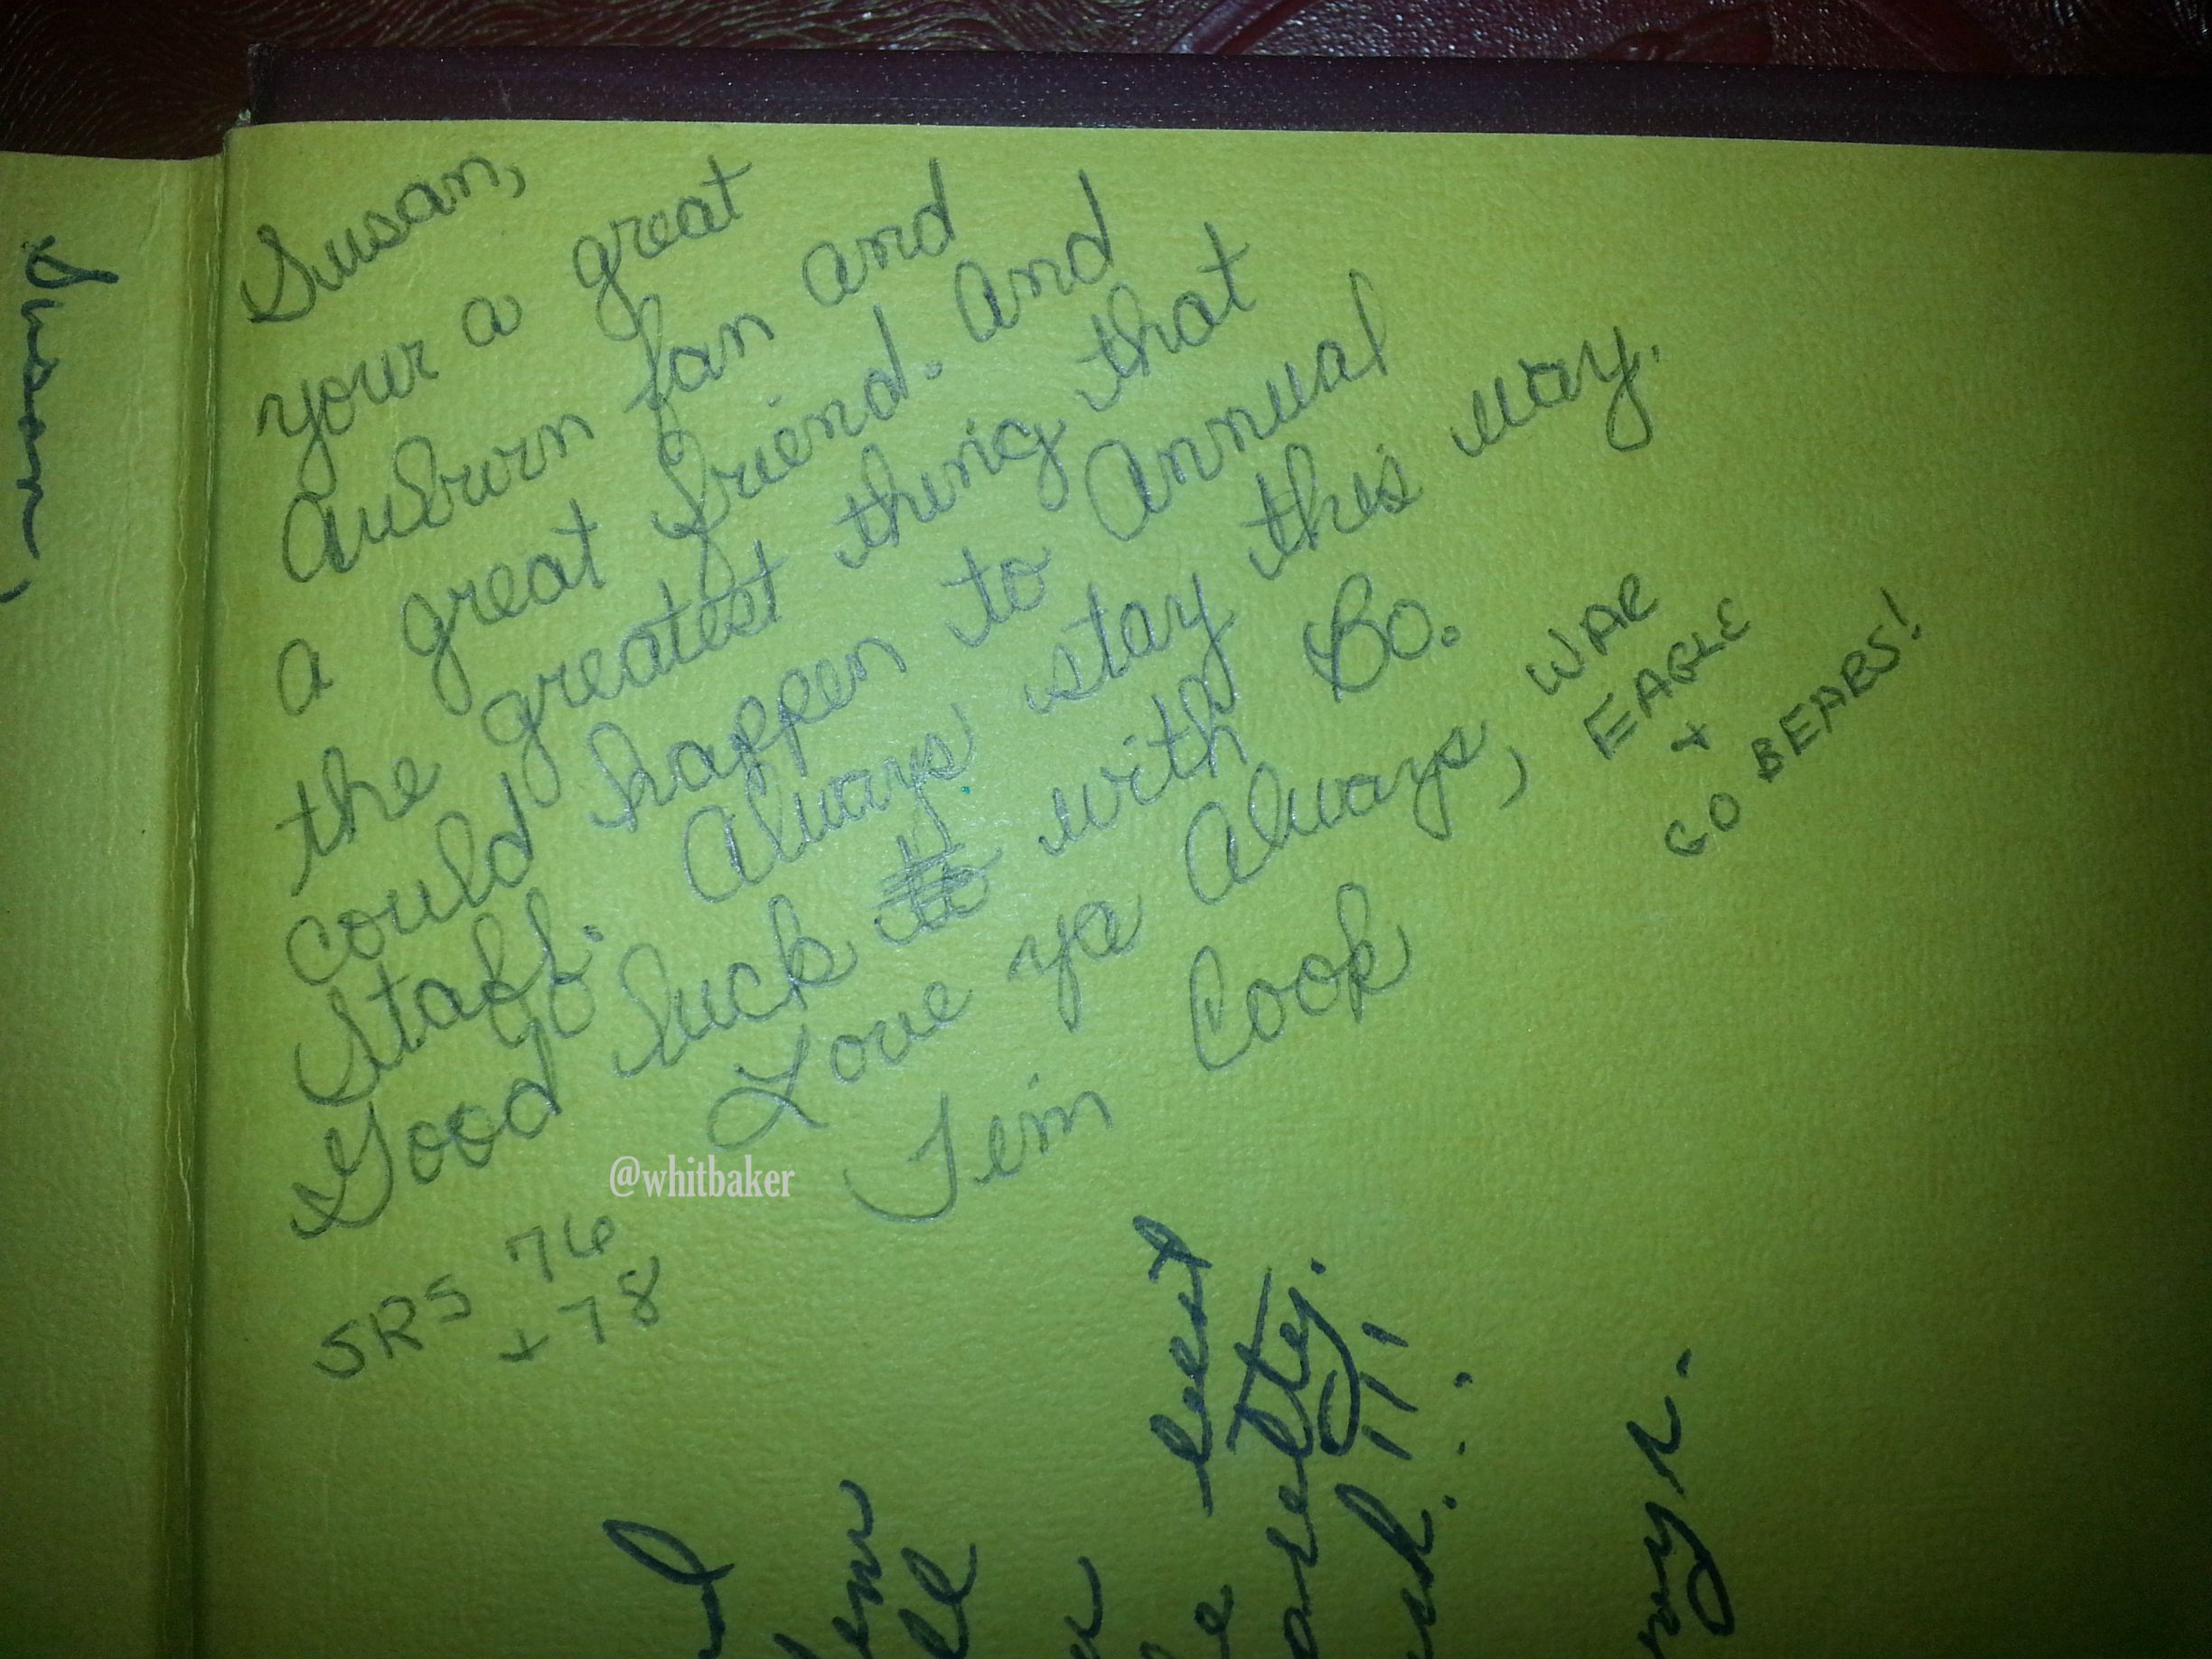 Susan,
your a great
Auburn fan and
a great friend. And
the greatest thing that
could happen to Annual
Staff. Always stay this way.
Good luck with Bo.
Love ya Always,
Tim Cook
WAR
EAGLE
+
GO BEARS!
SRS 76
+ 78
@whitbaker
Susan,